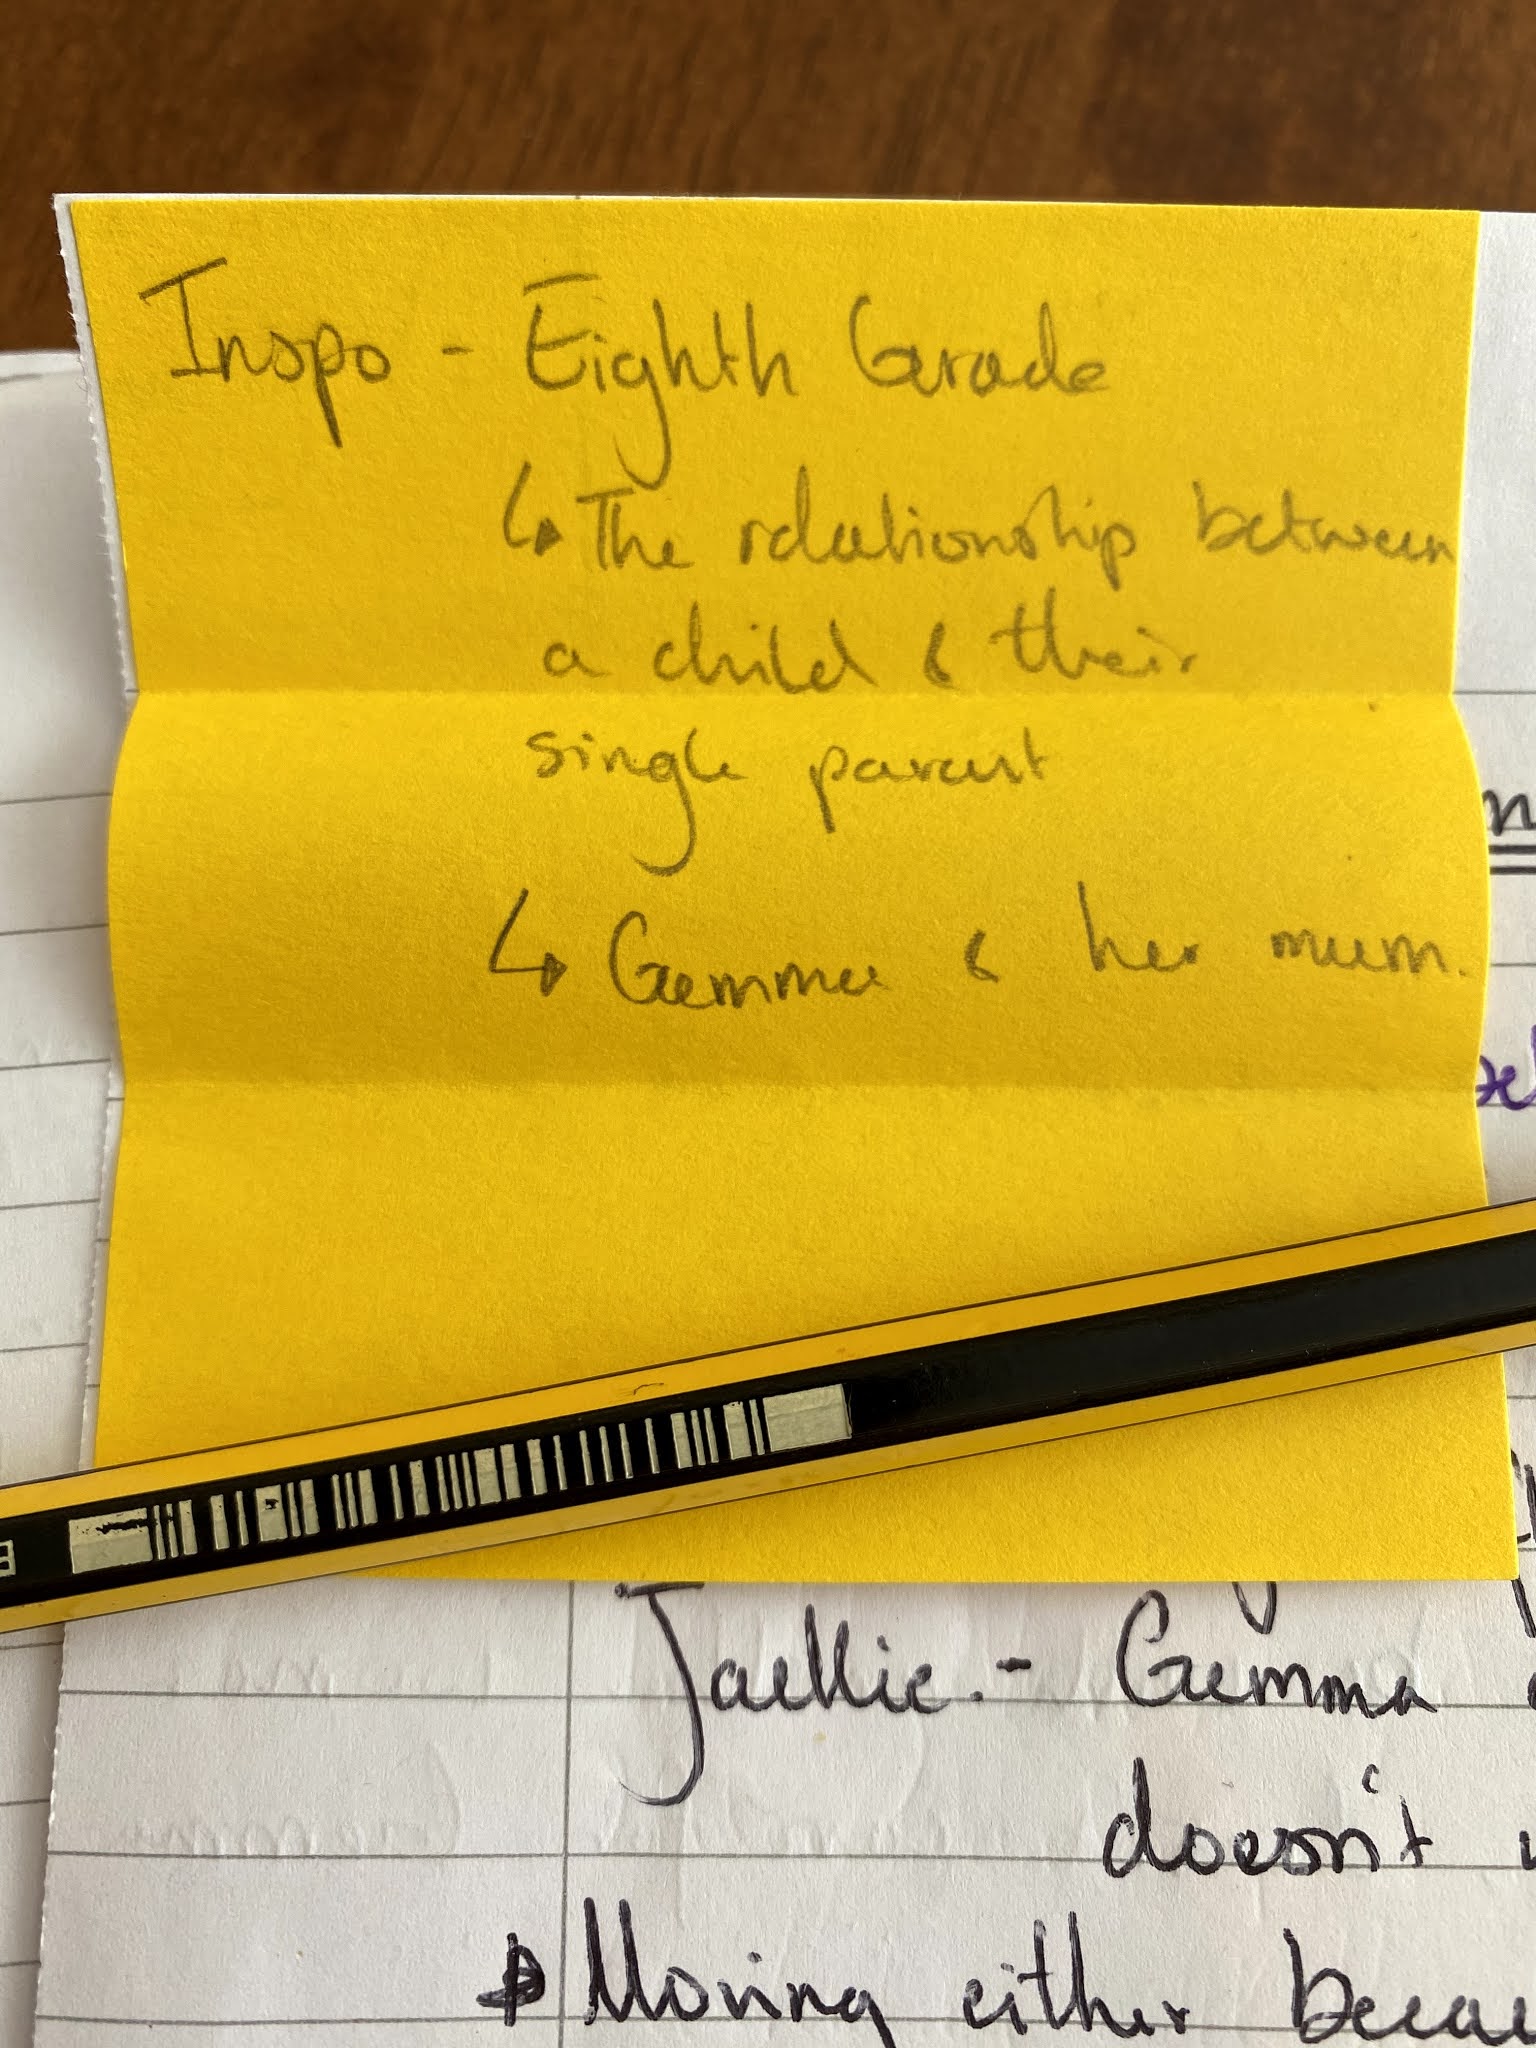 Inspo - Eighth Grade
↳ The relationship between
a child & their
single parent
↳ Gemma & her mum.
Jackie. - Gemma
doesn't
Moving either